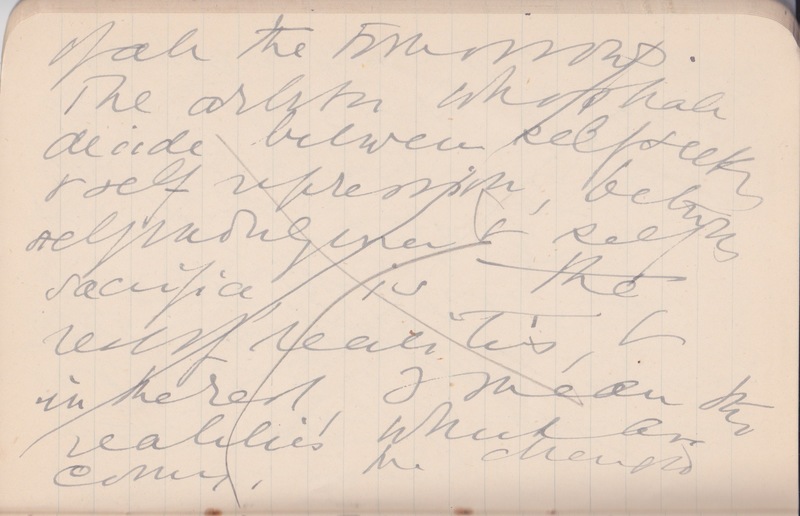 of all the Tomorrows.
The arbiter who shall
decide between self seeking
& self repression, between
self indulgence & self
sacrifice is the
rest of realities, &
in the rest I mean the
realities which are
coming, be changed